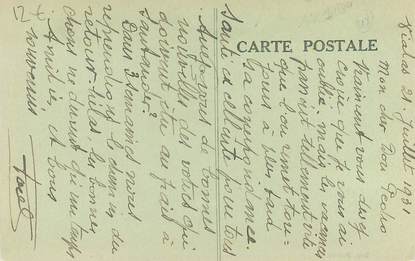 12+
CARTE POSTALE
Vialas 21 Juillet 1931
Mon cher Don Pedro
Vraiment vous devez
croire que je vous ai
oublié mais les vacances
passent tellement vite
que l'on remet tou-
jours à plus tard
sa correspondance.
Santé excellente pour tous
Avez vous de bonnes
nouvelles des votres qui
doivent être au frais à
Santander?
Dans 3 semaines nous
reprendrons le chemin du
retour hélas les bonnes
choses ne durent qu'un temps
Amitiés, et bons
souvenirs